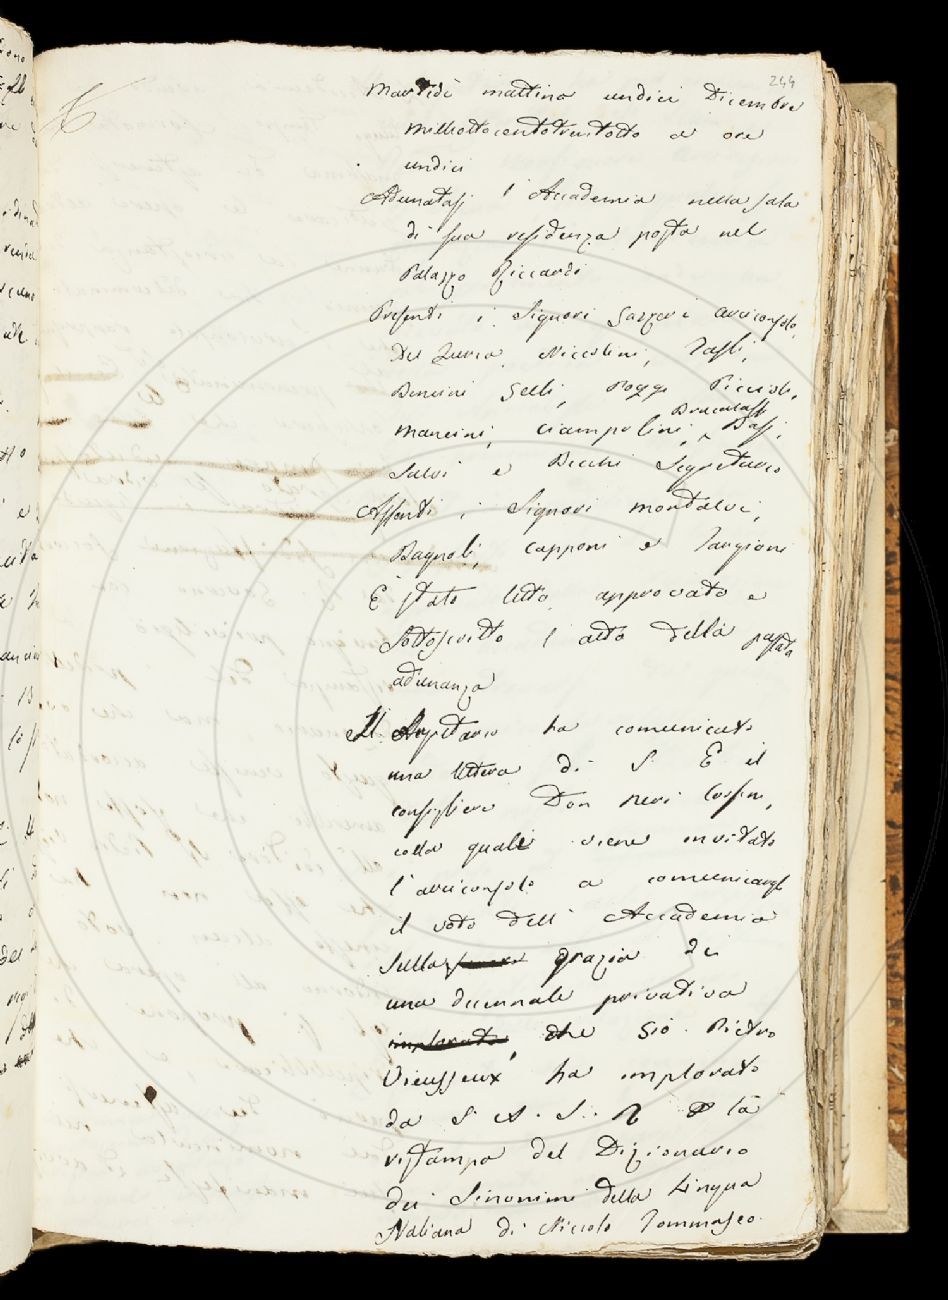 244
Martedì mattina undici Dicembre
milleottocentotrentotto a ore
undici
Adunatasi l'Accademia nella sala
di sua residenza posta nel
Palazzo Riccardi
Presenti i Signori Gazzeri arciconsolo,
Del Furia, Niccolini,
Bencini Gelli, Poggi Piccioli,
Brucalassi
Mancini, Ciampolini,
Salvi e Becchi Segretario
Assenti i Signori Montalvi,
Bagnoli, Capponi e Targioni
È stato letto approvato e
sottoscritto l'atto della passata
adunanza
Il Segretario ha comunicato
una lettera di S. E. il
consigliere Don Neri Corsini,
colla quale viene invitato
l'arciconsolo a comunicargli
il voto dell'Accademia
sulla grazia di
una decennale privativa
implorata, che Sig. Pietro
Vieusseux ha implorato
da S. A. I. R. p la
ristampa del Dizionario
dei Sinonimi della Lingua
Italiana di Niccolo Tommaseo.